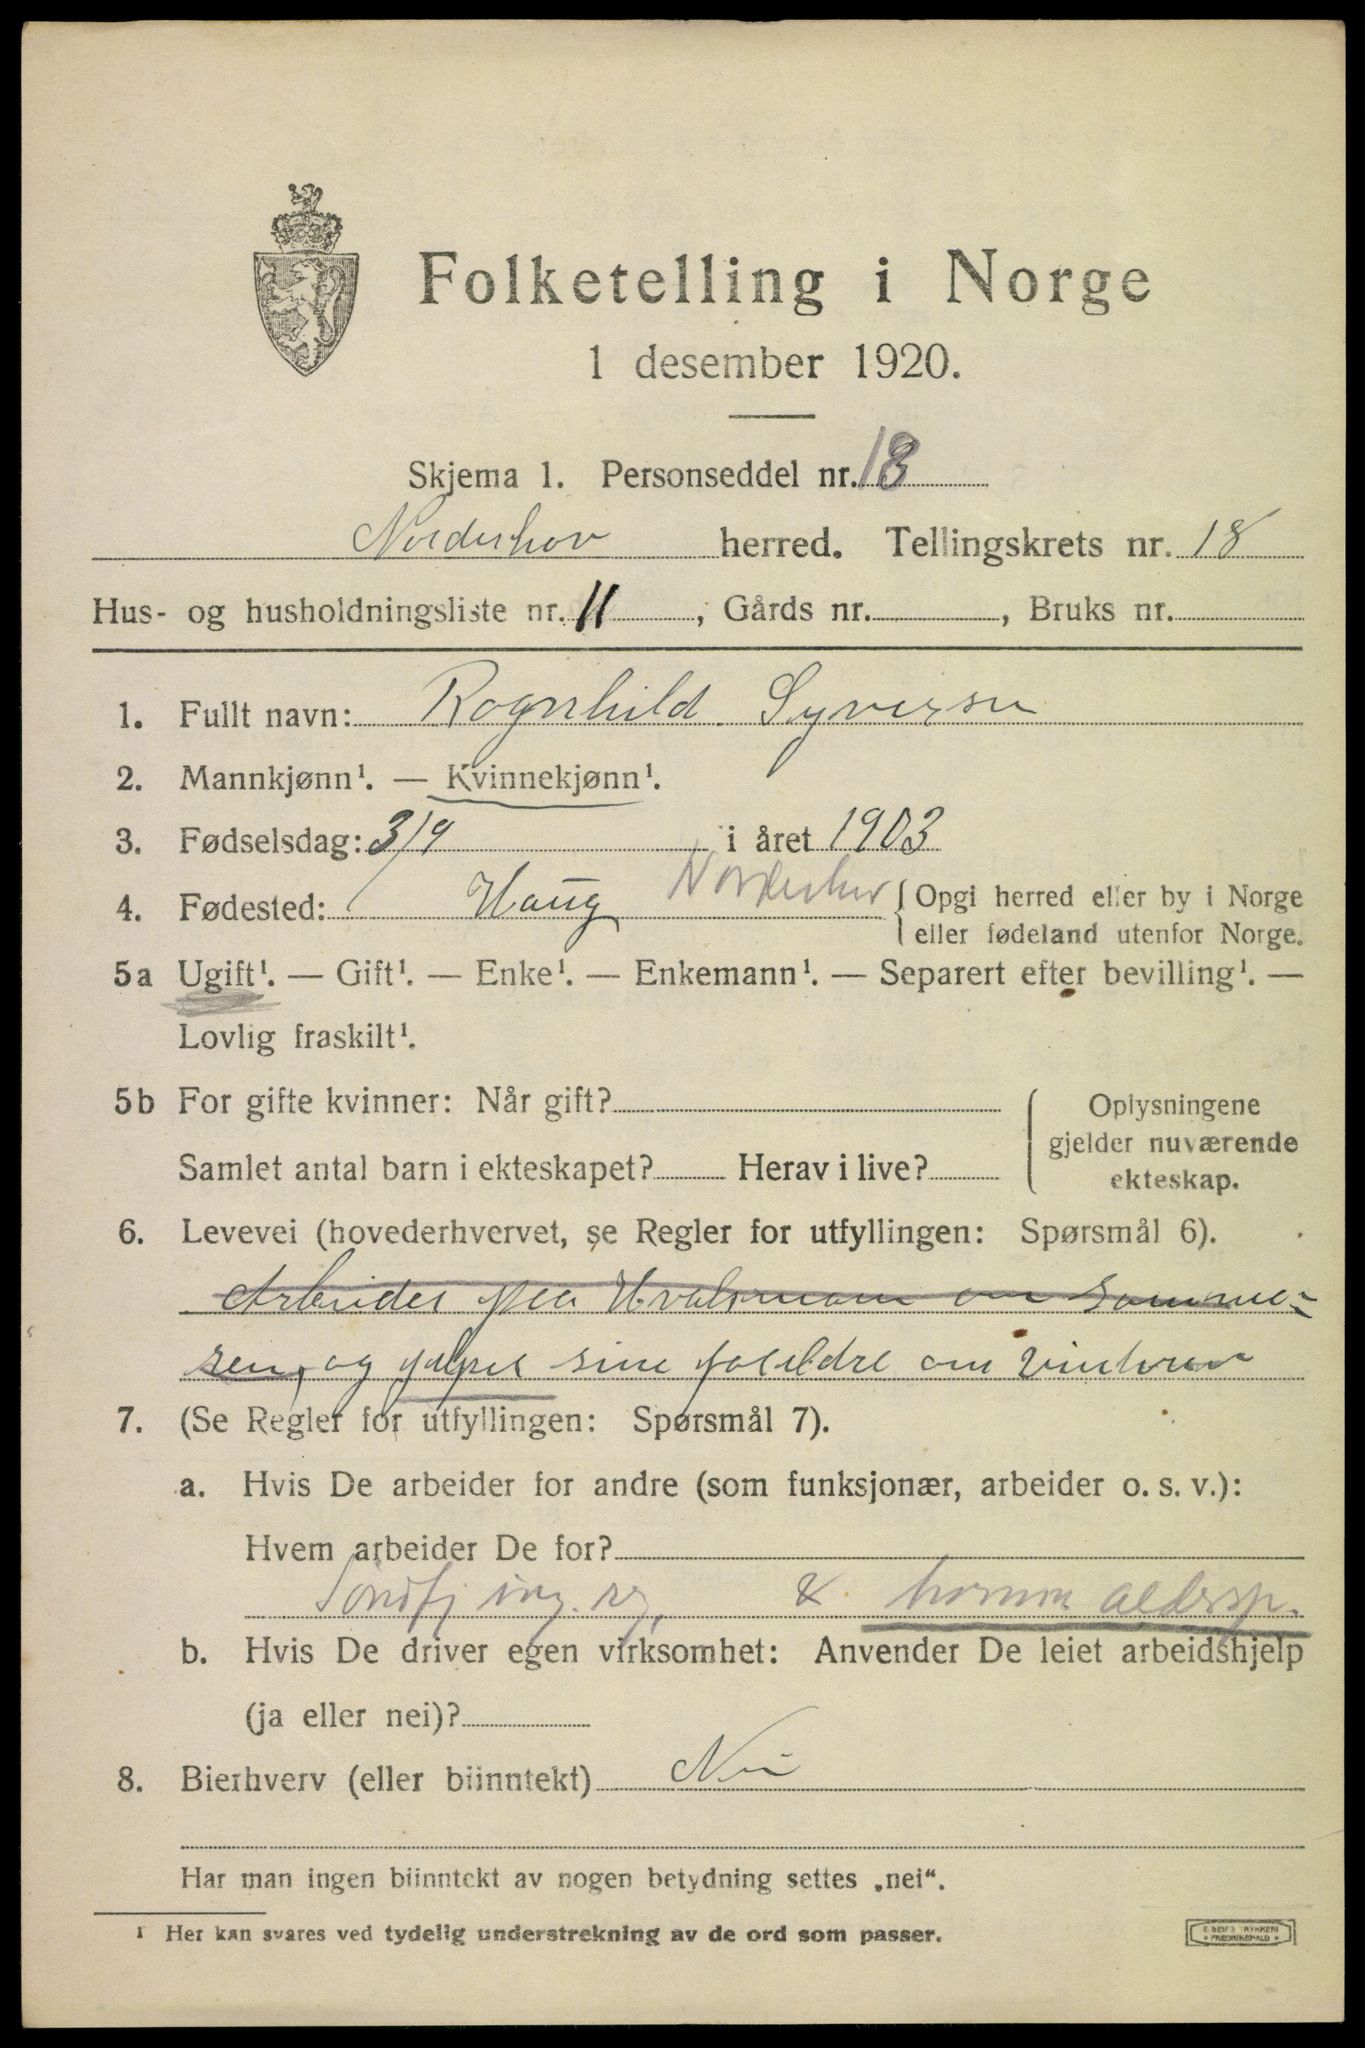 Folketelling i Norge
1 desember 1920.
Skjema 1. Personseddel nr. 18
Norderhov herred. Tellingskrets nr. 18
Hus- og husholdningsliste nr. 11, Gårds nr. , Bruks nr.
1. Fullt navn: Ragnhild Syversen
2. Mannkjønn¹. — Kvinnekjønn¹.
3. Fødselsdag: 3/9 i året 1903
4. Fødested: Haug Norderhov { Opgi herred eller by i Norge
eller fødeland utenfor Norge.
5a Ugift¹. — Gift¹. — Enke¹. — Enkemann¹. — Separert efter bevilling¹. —
Lovlig fraskilt¹.
5b For gifte kvinner: Når gift?
Samlet antal barn i ekteskapet? Herav i live?
Oplysningene
gjelder nuværende
ekteskap.
6. Levevei (hovederhvervet, se Regler for utfyllingen: Spørsmål 6).
Arbeider paa Hvalsmoen om somme-
ren, og hjelper sine foreldre om Vinteren
7. (Se Regler for utfyllingen: Spørsmål 7).
a. Hvis De arbeider for andre (som funksjonær, arbeider o. s. v.):
Hvem arbeider De for?
b. Hvis De driver egen virksomhet: Anvender De leiet arbeidshjelp
(ja eller nei)?
8. Bierhverv (eller biinntekt) Nei
Har man ingen biinntekt av nogen betydning settes „nei“.
1 Her kan svares ved tydelig understrekning av de ord som passer.